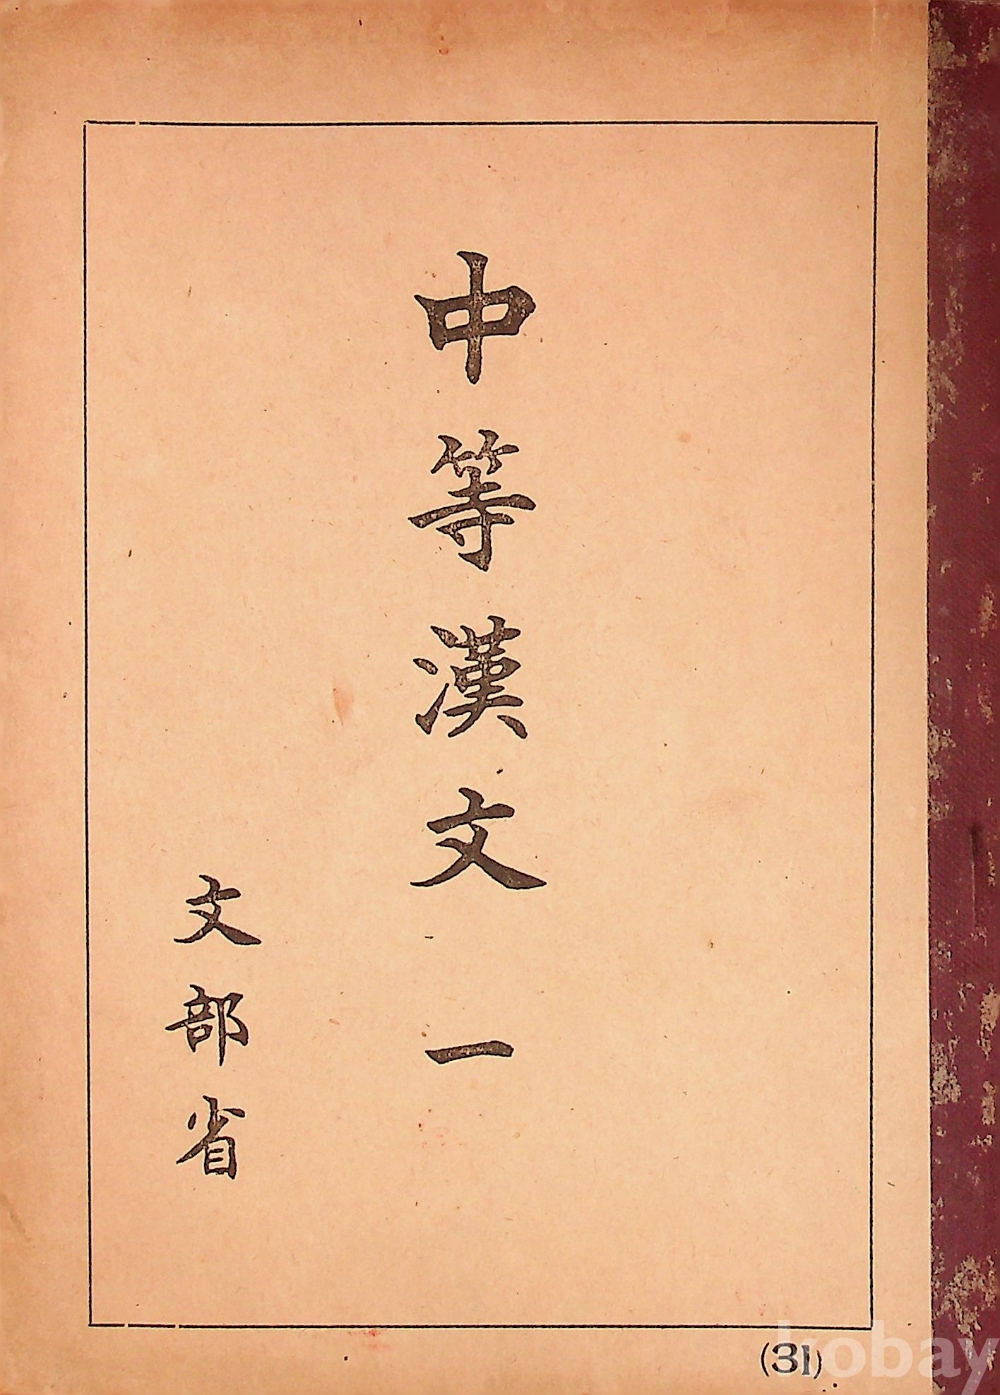 中等漢文 一
文部省
(31)
kobay